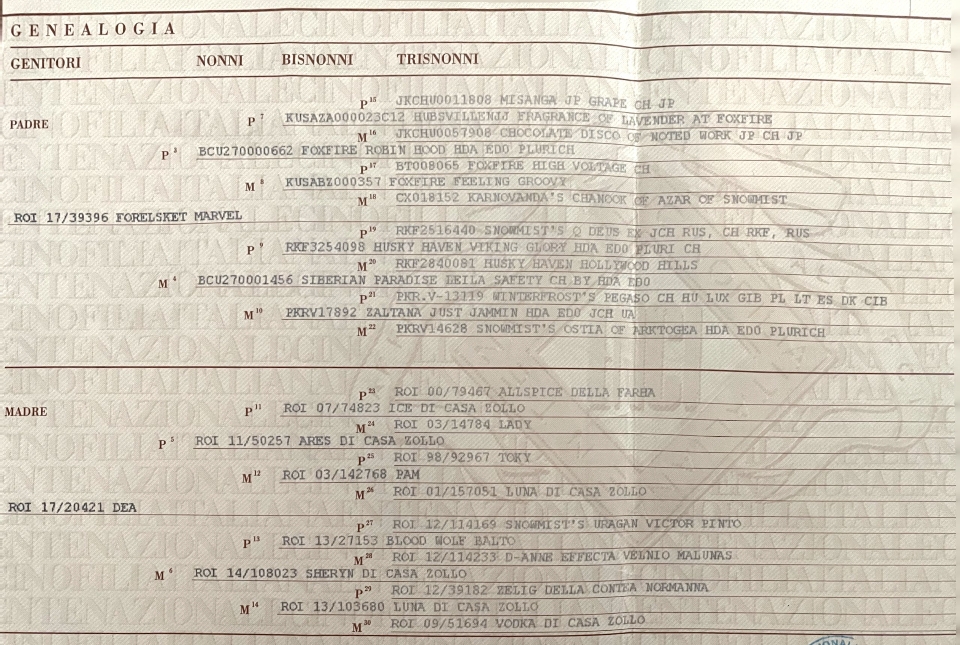 GENEALOGIA
GENITORI NONNI BISNONNI TRISNONNI
P15 JKCHU0011808 MISANGA JP GRAPE CH JP
PADRE P7 KUSAZA000023C12 HUBSVILLENJJ FRAGRANCE OF LAVENDER AT FOXFIRE
M16 JKCHU0057908 CHOCOLATE DISCO OF NOTED WORK JP CH JP
P3 BCU270000662 FOXFIRE ROBIN HOOD HDA EDO PLURICH
P17 BT008065 FOXFIRE HIGH VOLTAGE CH
M8 KUSABZ000357 FOXFIRE FEELING GROOVY
M18 CX018152 KARNOVANDA'S CHANOOK OF AZAR OF SNOWMIST
ROI 17/39396 FORELSKET MARVEL
P19 RKF2516440 SNOWMIST'S Q DEUS EX JCH RUS, CH RKF, RUS
P9 RKF3254098 HUSKY HAVEN VIKING GLORY HDA EDO PLURI CH
M20 RKF2840081 HUSKY HAVEN HOLLYWOOD HILLS
M4 BCU270001456 SIBERIAN PARADISE LEILA SAFETY CH BY HDA EDO
P21 PKR.V-13119 WINTERFROST'S PEGASO CH HU LUX GIB PL LT ES DK CIB
M10 PKRV17892 ZALTANA JUST JAMMIN HDA EDO JCH UA
M22 PKRV14628 SNOWMIST'S OSTIA OF ARKTOGEA HDA EDO PLURICH
P23 ROI 00/79467 ALLSPICE DELLA FARHA
MADRE P11 ROI 07/74823 ICE DI CASA ZOLLO
M24 ROI 03/14784 LADY
P5 ROI 11/50257 ARES DI CASA ZOLLO
P25 ROI 98/92967 TOKY
M12 ROI 03/142768 PAM
M26 ROI 01/157051 LUNA DI CASA ZOLLO
ROI 17/20421 DEA
P27 ROI 12/114169 SNOWMIST'S URAGAN VICTOR PINTO
P13 ROI 13/27153 BLOOD WOLF BALTO
M28 ROI 12/114233 D-ANNE EFFECTA VELNIO MALUNAS
M6 ROI 14/108023 SHERYN DI CASA ZOLLO
P29 ROI 12/39182 ZELIG DELLA CONTEA NORMANNA
M14 ROI 13/103680 LUNA DI CASA ZOLLO
M30 ROI 09/51694 VODKA DI CASA ZOLLO